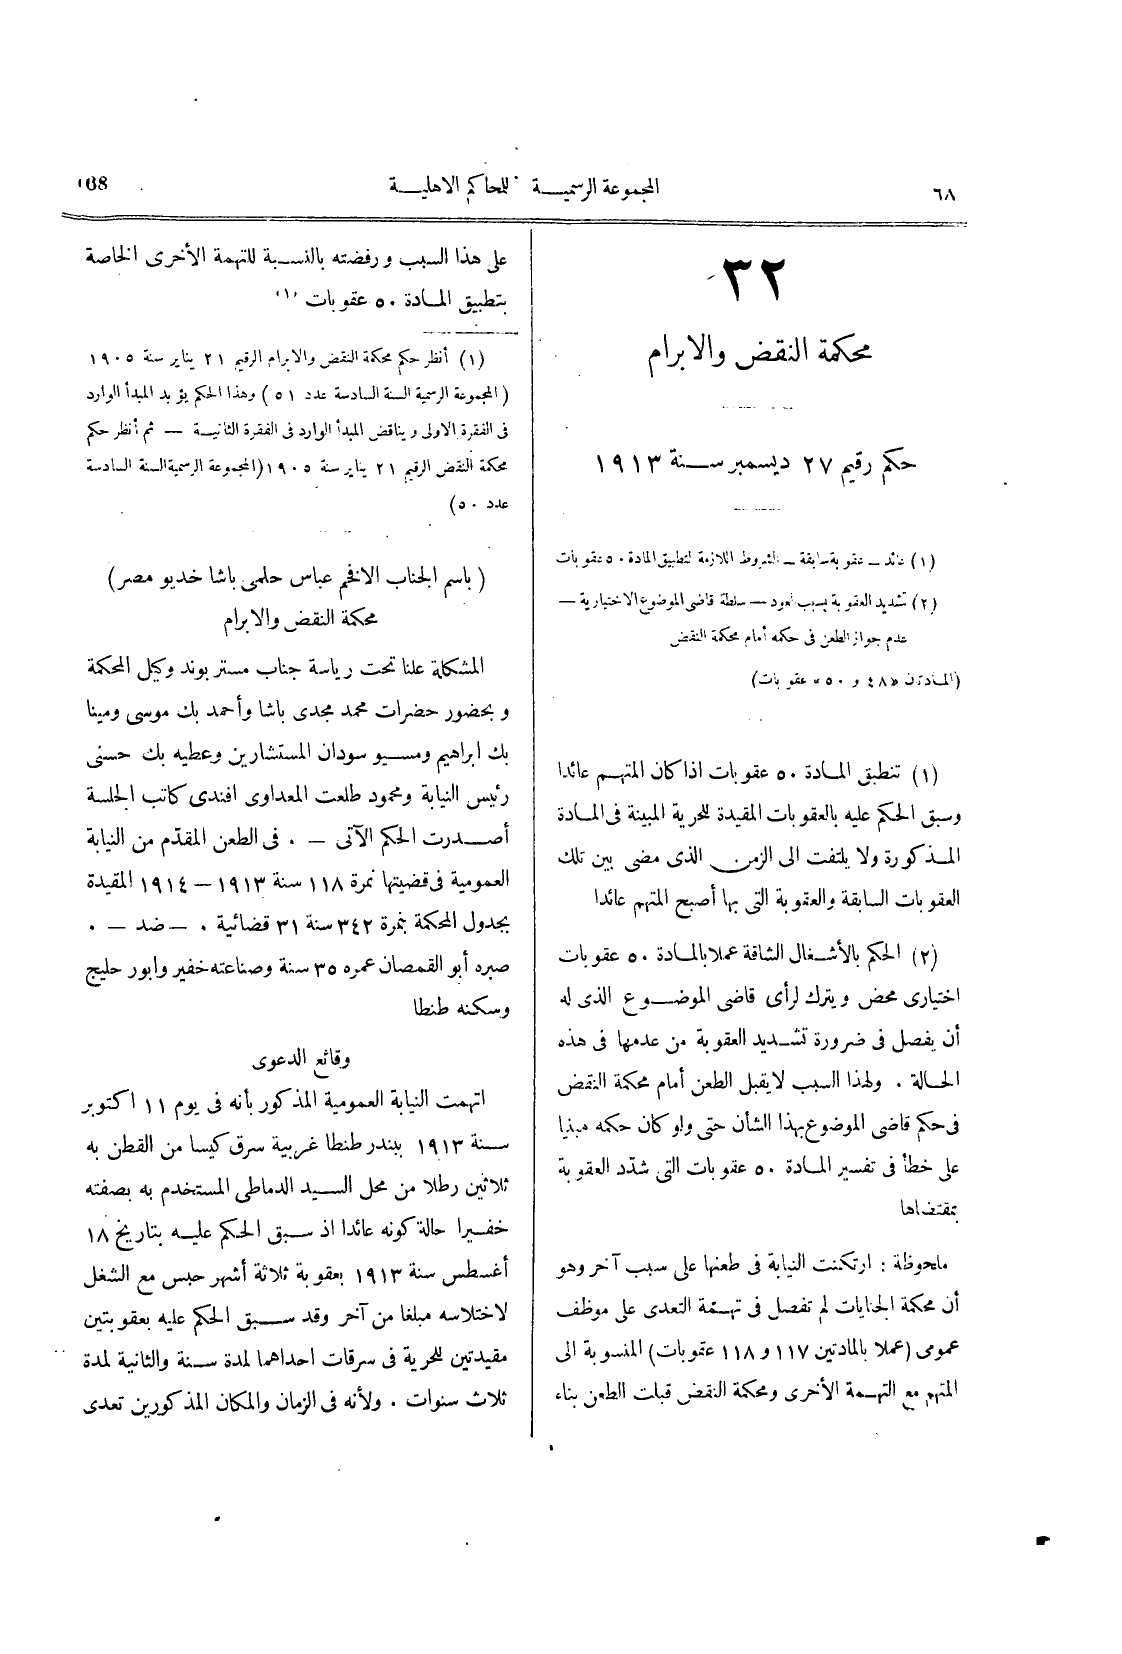 ٦٨
المجموعة الرسمية للمحاكم الاهلية
68
٣٢
محكمة النقض والابرام
حكم رقيم ٢٧ ديسمبر سنة ١٩١٣
(١) عائد – عقوبة سابقة – الشروط اللازمة لتطبيق المادة ٥٠ عقوبات
(٢) تشديد العقوبة بسبب العود – سلطة قاضى الموضوع الاختيارية –
عدم جواز الطعن فى حكمه أمام محكمة النقض
(المادتان «٤٨ و ٥٠» عقوبات)
(١) تنطبق المادة ٥٠ عقوبات اذا كان المتهم عائدا
وسبق الحكم عليه بالعقوبات المقيدة للحرية المبينة فى المادة
المذكورة ولا يلتفت الى الزمن الذى مضى بين تلك
العقوبات السابقة والعقوبة التى بها أصبح المتهم عائدا
(٢) الحكم بالأشغال الشاقة عملا بالمادة ٥٠ عقوبات
اختيارى محض ويترك لرأى قاضى الموضوع الذى له
أن يفصل فى ضرورة تشديد العقوبة من عدمها فى هذه
الحالة . ولهذا السبب لا يقبل الطعن أمام محكمة النقض
فى حكم قاضى الموضوع بهذا الشأن حتى ولو كان حكمه مبنيا
على خطأ فى تفسير المادة ٥٠ عقوبات التى شدّد العقوبة
بمقتضاها
ملحوظة : ارتكنت النيابة فى طعنها على سبب آخر وهو
أن محكمة الجنايات لم تفصل فى تهمة التعدى على موظف
عمومى (عملا بالمادتين ١١٧ و ١١٨ عقوبات) المنسوبة الى
المتهم مع التهمة الأخرى ومحكمة النقض قبلت الطعن بناء
على هذا السبب ورفضته بالنسبة للتهمة الأخرى الخاصة
بتطبيق المادة ٥٠ عقوبات (١)
(١) أنظر حكم محكمة النقض والابرام الرقيم ٢١ يناير سنة ١٩٠٥
(المجموعة الرسمية السنة السادسة عدد ٥١) وهذا الحكم يؤيد المبدأ الوارد
فى الفقرة الاولى ويناقض المبدأ الوارد فى الفقرة الثانية – ثم أنظر حكم
محكمة النقض الرقيم ٢١ يناير سنة ١٩٠٥ (المجموعة الرسمية السنة السادسة
عدد ٥٠)
(باسم الجناب الافخم عباس حلمى باشا خديو مصر)
محكمة النقض والابرام
المشكلة علنا تحت رياسة جناب مستر بوند وكيل المحكمة
وبحضور حضرات محمد مجدى باشا وأحمد بك موسى ومينا
بك ابراهيم ومسيو سودان المستشارين وعطيه بك حسنى
رئيس النيابة ومحمود طلعت المعداوى افندى كاتب الجلسة
أصدرت الحكم الآتى – . فى الطعن المقدّم من النيابة
العمومية فى قضيتها نمرة ١١٨ سنة ١٩١٣ – ١٩١٤ المقيدة
بجدول المحكمة بنمرة ٣٤٢ سنة ٣١ قضائية . – ضد – .
صبره أبو القمصان عمره ٣٥ سنة وصناعته خفير وابور حليج
وسكنه طنطا
وقائع الدعوى
اتهمت النيابة العمومية المذكور بأنه فى يوم ١١ اكتوبر
سنة ١٩١٣ ببندر طنطا غربية سرق كيسا من القطن به
ثلاثين رطلا من محل السيد الدماطى المستخدم به بصفته
خفيرا حالة كونه عائدا اذ سبق الحكم عليه بتاريخ ١٨
أغسطس سنة ١٩١٣ بعقوبة ثلاثة أشهر حبس مع الشغل
لاختلاسه مبلغا من آخر وقد سبق الحكم عليه بعقوبتين
مقيدتين للحرية فى سرقات احداهما لمدة سنة والثانية لمدة
ثلاث سنوات . ولأنه فى الزمان والمكان المذكورين تعدى